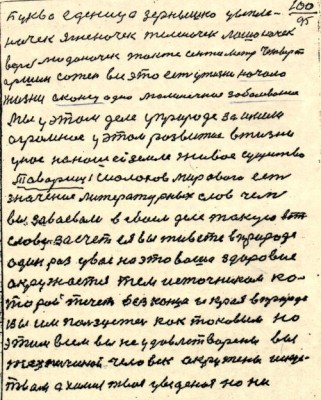 100
95
Буква еденица зернышко цветоч-
ночек ягненочек теленочек
верблюдоночек также сентиметр четверт
аршин сажен вы это есть у жизни начало
жизни скажу одно маленичкое заболевание
Мы у этом деле у природе зашили
огромное у этом развитие в жизни
у нас на нашей земле живое существо
Товарищ! с молоков мирового есть
значение литературных слов чем
вы заваевали в своем деле такую вот
слову за счет ея вы живете в природе
один раз у вас на это ваше здоровие
окружается тем источником ко-
торой тичет без конца и края в природе
вы им ползуетес как таковым но
этим всем вы не удовлетворены вы
техничиной человек окружены
твам а химия твоя уведеная но ни